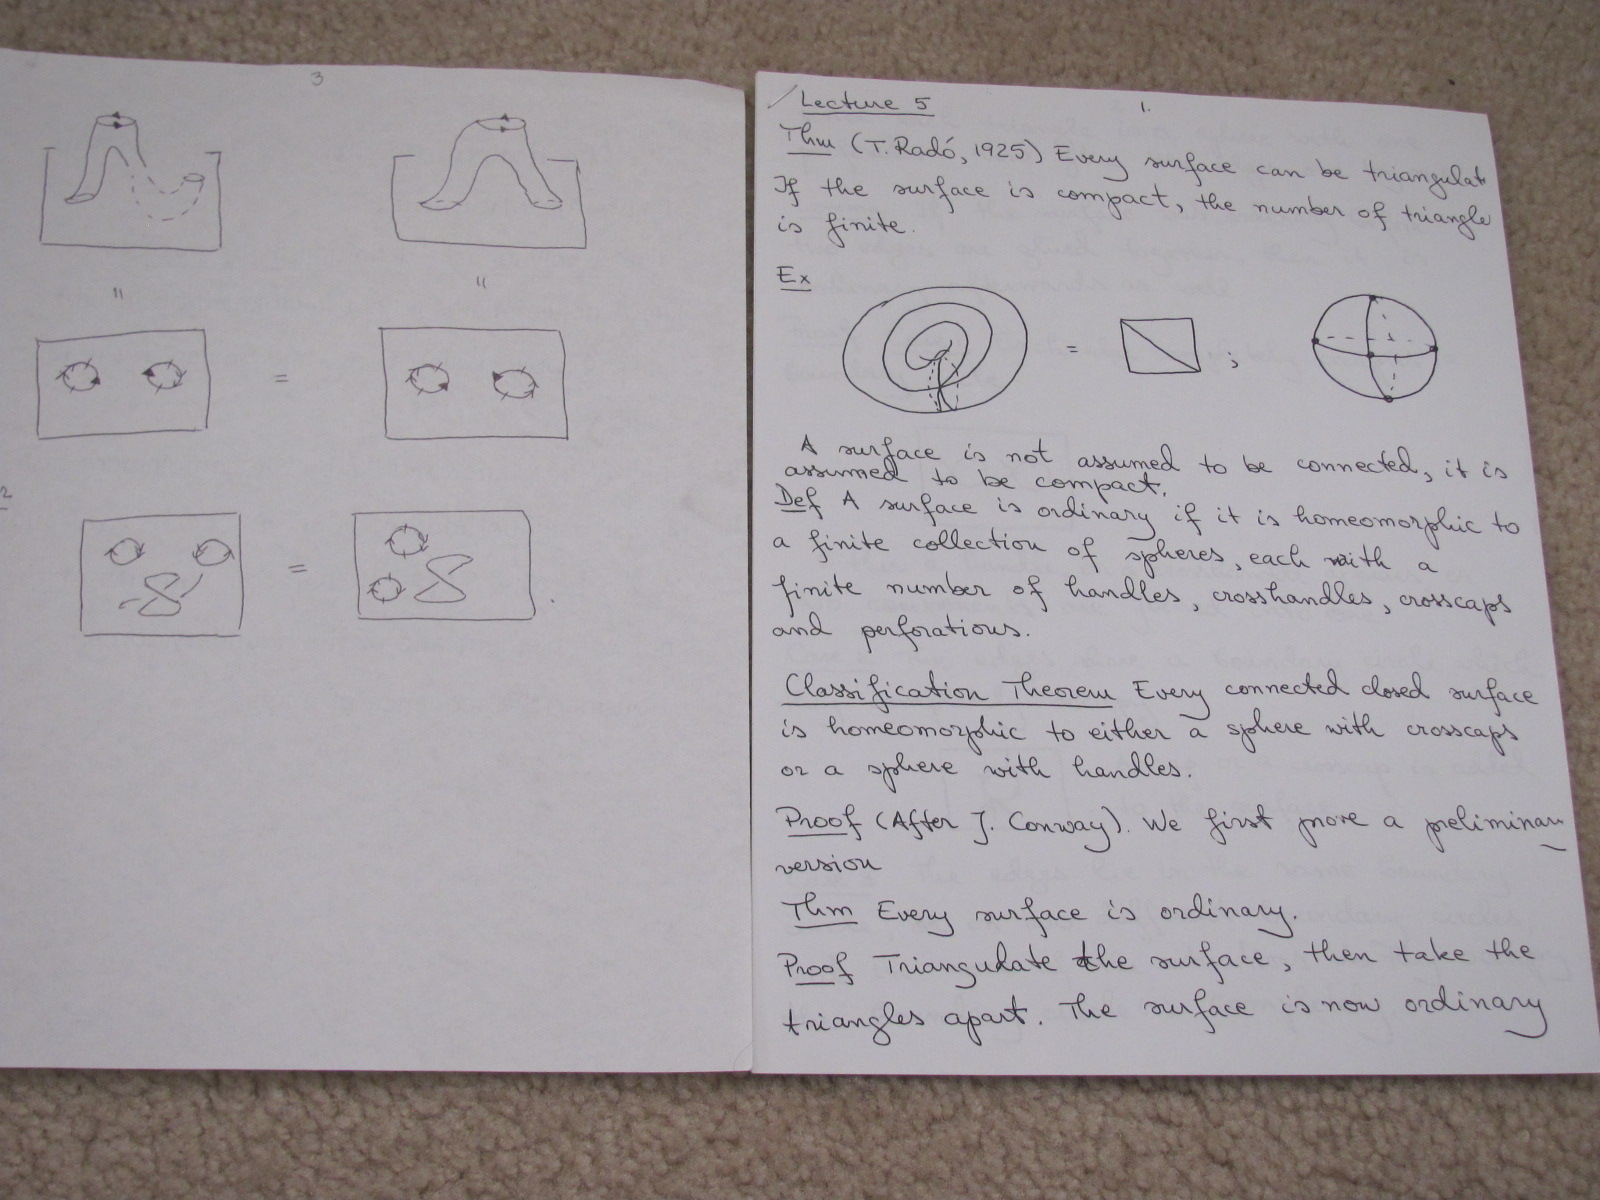 3
Lecture 5
1.
Thm (T. Radó, 1925) Every surface can be triangulat
If the surface is compact, the number of triangle
is finite.
Ex
= ;
A surface is not assumed to be connected, it is
assumed to be compact.
Def A surface is ordinary if it is homeomorphic to
a finite collection of spheres, each with a
finite number of handles, crosshandles, crosscaps
and perforations.
Classification Theorem Every connected closed surface
is homeomorphic to either a sphere with crosscaps
or a sphere with handles.
Proof (After J. Conway). We first prove a preliminary
version
Thm Every surface is ordinary.
Proof Triangulate the surface, then take the
triangles apart. The surface is now ordinary